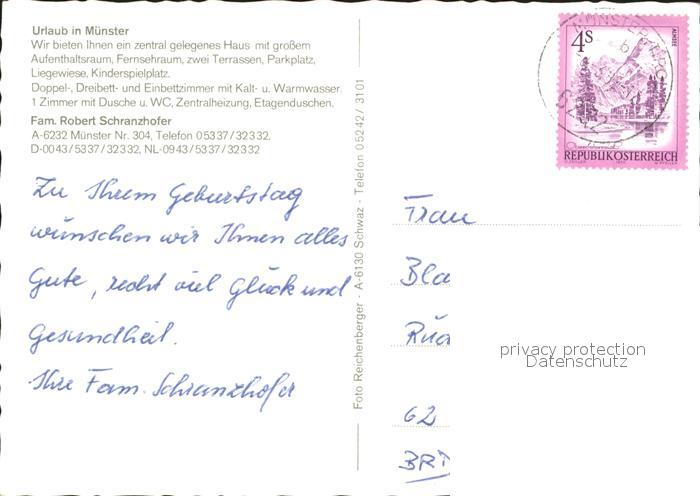 Urlaub in Münster
Wir bieten Ihnen ein zentral gelegenes Haus mit großem
Aufenthaltsraum, Fernsehraum, zwei Terrassen, Parkplatz,
Liegewiese, Kinderspielplatz.
Doppel-, Dreibett- und Einbettzimmer mit Kalt- u. Warmwasser.
1 Zimmer mit Dusche u. WC, Zentralheizung, Etagenduschen.
Fam. Robert Schranzhofer
A-6232 Münster Nr. 304, Telefon 05337/32332,
D-0043/5337/32332, NL-0943/5337/32332
Zu Ihrem Geburtstag
wünschen wir Ihnen alles
Gute, recht viel Glück und
Gesundheit.
Ihre Fam. Schranzhofer
Foto Reichenberger - A-6130 Schwaz - Telefon 05242/3101
4S
ALMSEE
REPUBLIK ÖSTERREICH
MÜNSTER
Frau
Bla
Rüd
62
BRD
privacy protection
Datenschutz